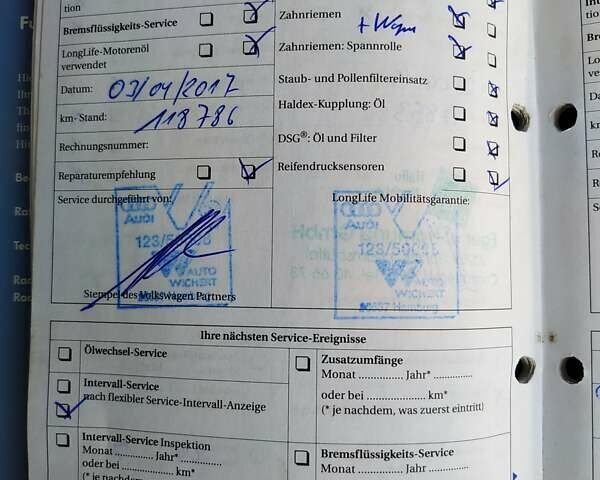 tion
Bremsflüssigkeits-Service
LongLife-Motorenöl
verwendet
Datum: 03/04/2017
km-Stand: 118786
Rechnungsnummer:
Reparaturempfehlung
Service durchgeführt von:
Audi
123/50
AUTO
WICHERT
Hamburg
Stempel des Volkswagen Partners
Zahnriemen
Zahnriemen: Spannrolle
Staub- und Pollenfiltereinsatz
Haldex-Kupplung: Öl
DSG®: Öl und Filter
Reifendrucksensoren
LongLife Mobilitätsgarantie:
Audi
123/50
AUTO
WICHERT
Hamburg
Ihre nächsten Service-Ereignisse
Ölwechsel-Service
Intervall-Service
nach flexibler Service-Intervall-Anzeige
Intervall-Service Inspektion
Monat ............... Jahr* ...............
oder bei .................... km*
(* je nachdem, was
Zusatzumfänge
Monat ............... Jahr* ...............
oder bei .................... km*
(* je nachdem, was zuerst eintritt)
Bremsflüssigkeits-Service
Monat ............... Jahr* ...............